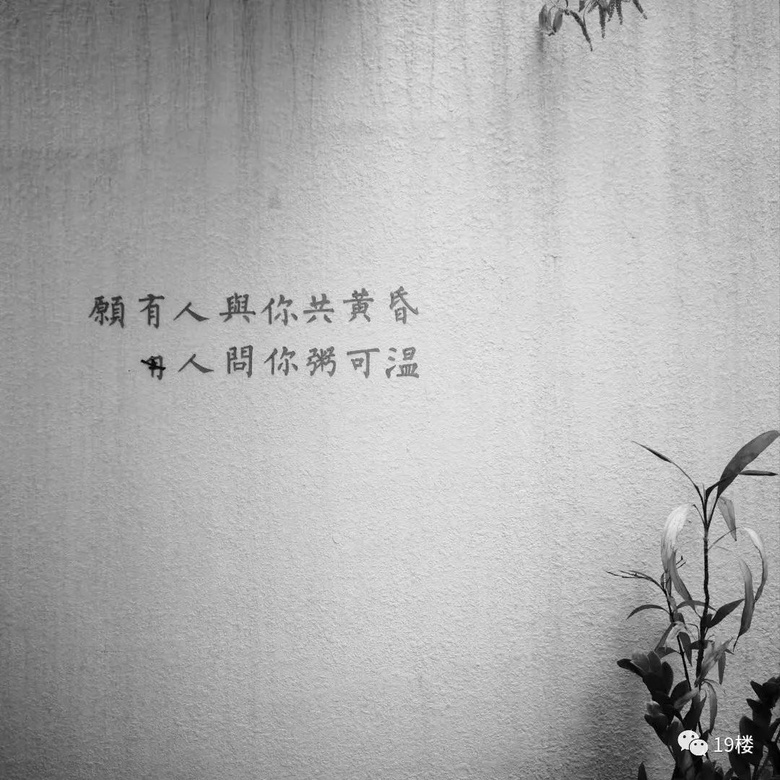 願有人與你共黄昏
有人問你粥可温
19楼